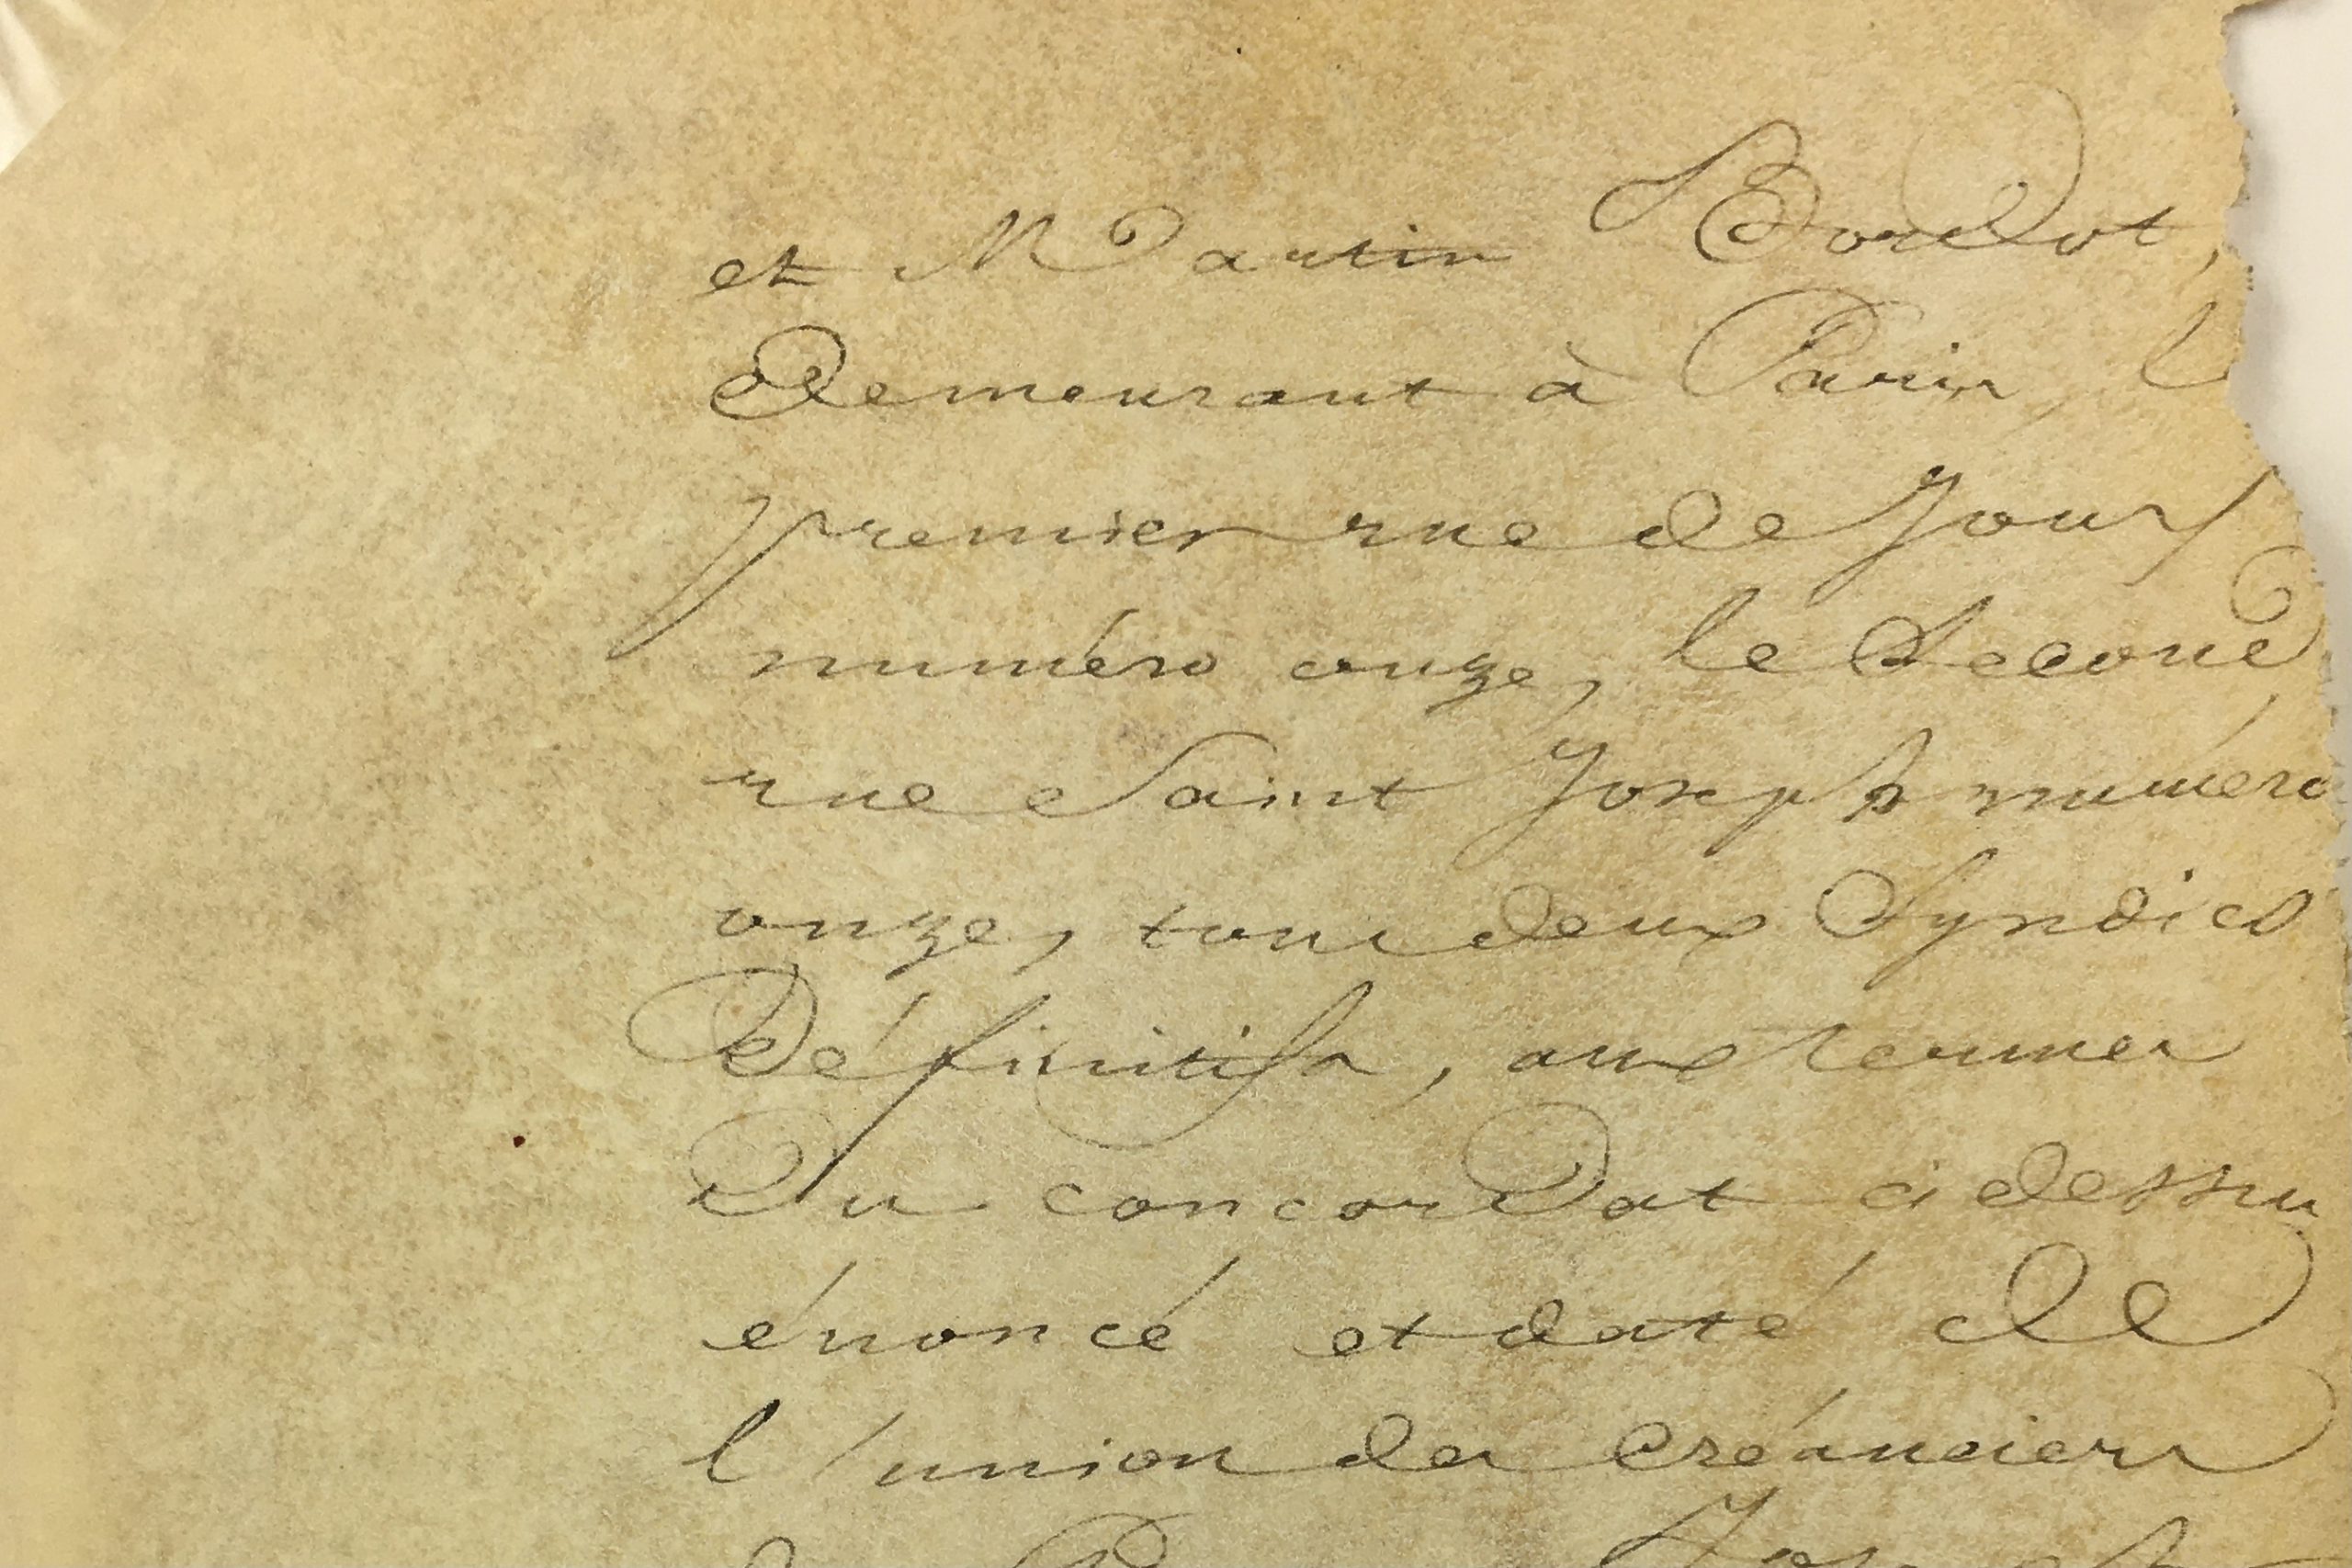 et Martin Bordot,
demeurant à Paris, l
premier rue de Jouy
numéro onze, le Second
rue Saint Joseph numéro
onze, tous deux Syndics
définitifs, aux termes
du concordat ci dessu
énoncé et daté de
l'union des créanciers